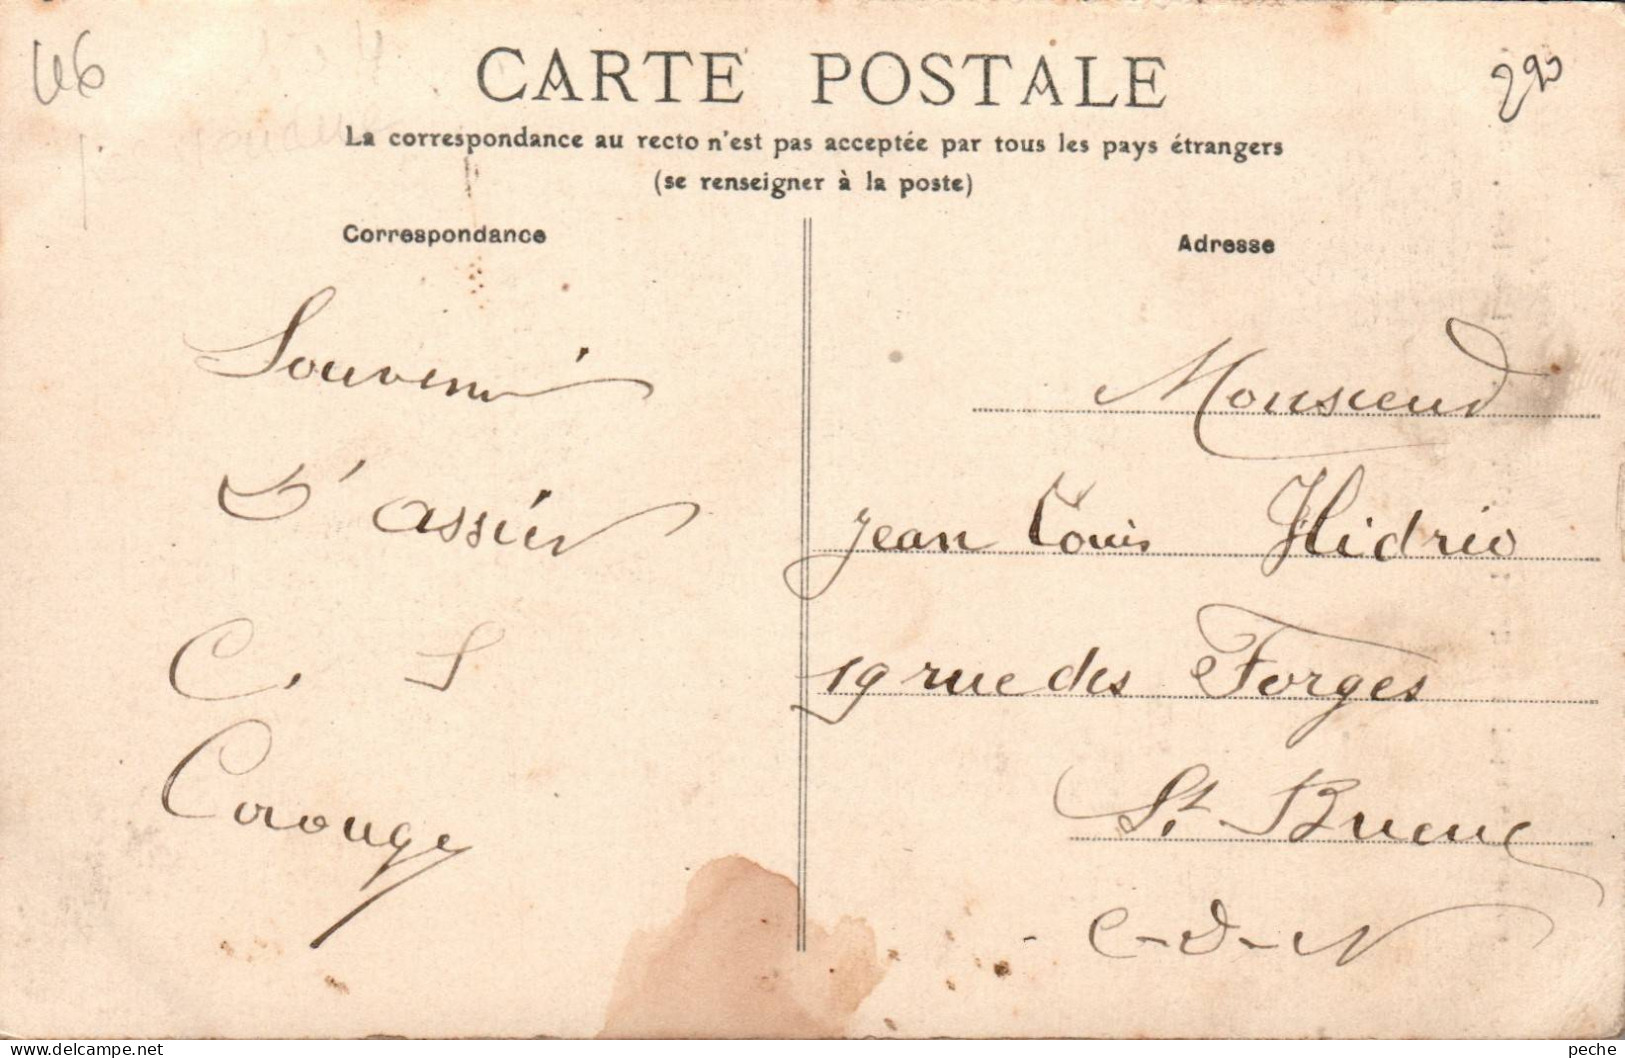 46
290
CARTE POSTALE
La correspondance au recto n'est pas acceptée par tous les pays étrangers
(se renseigner à la poste)
Correspondance
Souvenir
D'assier
C. S
Corouge
Adresse
Monsieur
Jean Louis Hidrio
19 rue des Forges
St. Brieuc
- C-D-N
www.delcampe.net
peche